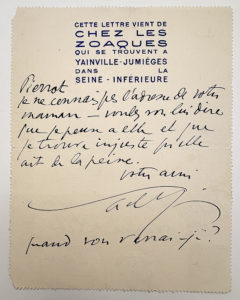 CETTE LETTRE VIENT DE
CHEZ LES
ZOAQUES
QUI SE TROUVENT A
YAINVILLE-JUMIÉGES
DANS LA
SEINE-INFERIEURE
Pierrot
je ne connais pas l'adresse de votre
maman – voulez vous lui dire
que je pense a elle et que
je trouve injuste qu'elle
ait de la peine.
votre ami
quand vous verrai-je?